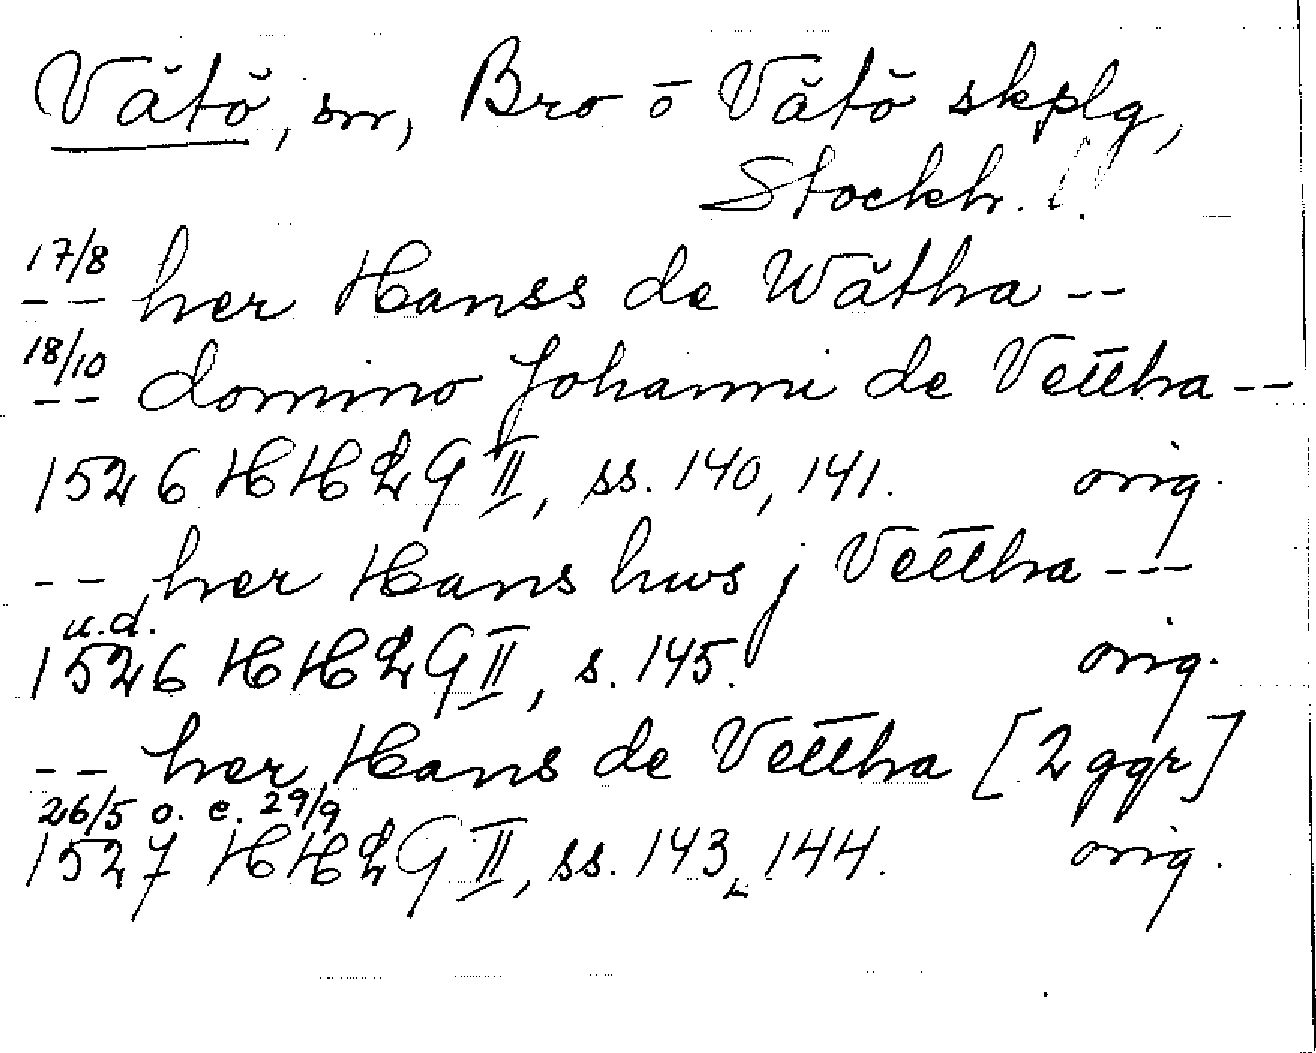 Vätö, sn, Bro o Vätö skplg,
Stockh. l.
17/8
-- her Hanss de Wätha --
18/10
-- domino Johanni de Vettha --
1526 HH2G II, ss. 140, 141. orig.
-- her Hans hws j Vettha ---
u.d.
1526 HH2G II, s. 145. orig.
-- her Hans de Vettha [2 ggr]
26/5 o. e. 29/9
1527 HH2G II, ss. 143, 144. orig.